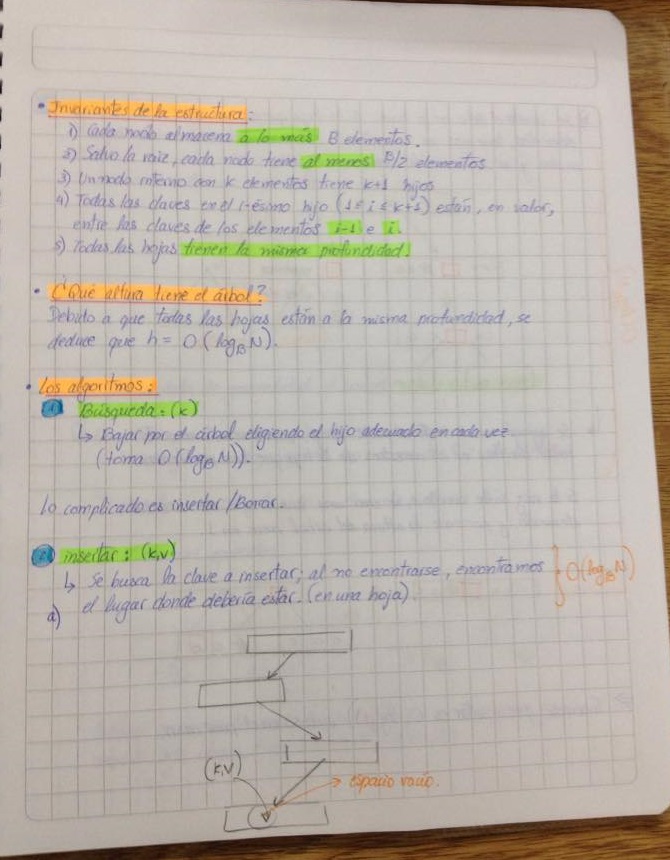 • Invariantes de la estructura:
1) Cada nodo almacena a lo más B elementos.
2) Salvo la raíz, cada nodo tiene al menos B/2 elementos
3) Un nodo interno con k elementos tiene k+1 hijos
4) Todas las claves en el i-ésimo hijo (1 ≤ i ≤ k+1) están, en valor,
entre las claves de los elementos i-1 e i.
5) Todas las hojas tienen la misma profundidad!
• ¿Qué altura tiene el árbol?
Debido a que todas las hojas están a la misma profundidad, se
deduce que h = O(log_B N).
• Los algoritmos:
① Búsqueda: (k)
↳ Bajar por el árbol eligiendo el hijo adecuado en cada vez
(toma O(log_B N)).
Lo complicado es insertar/Borrar.
② insertar: (k,v)
↳ Se busca la clave a insertar; al no encontrarse, encontramos } O(log_B N)
a) el lugar donde debería estar. (en una hoja)
(k,v)
→ espacio vacío.